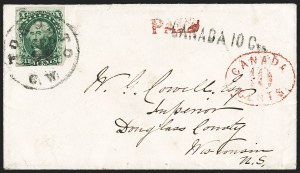 TORONTO
C.W.
TEN CENTS
PAID
CANADA 10 C
CANADA
10
CENTS
W. G. Cowell, Esq
Superior
Douglass County
Wisconsin
U.S.